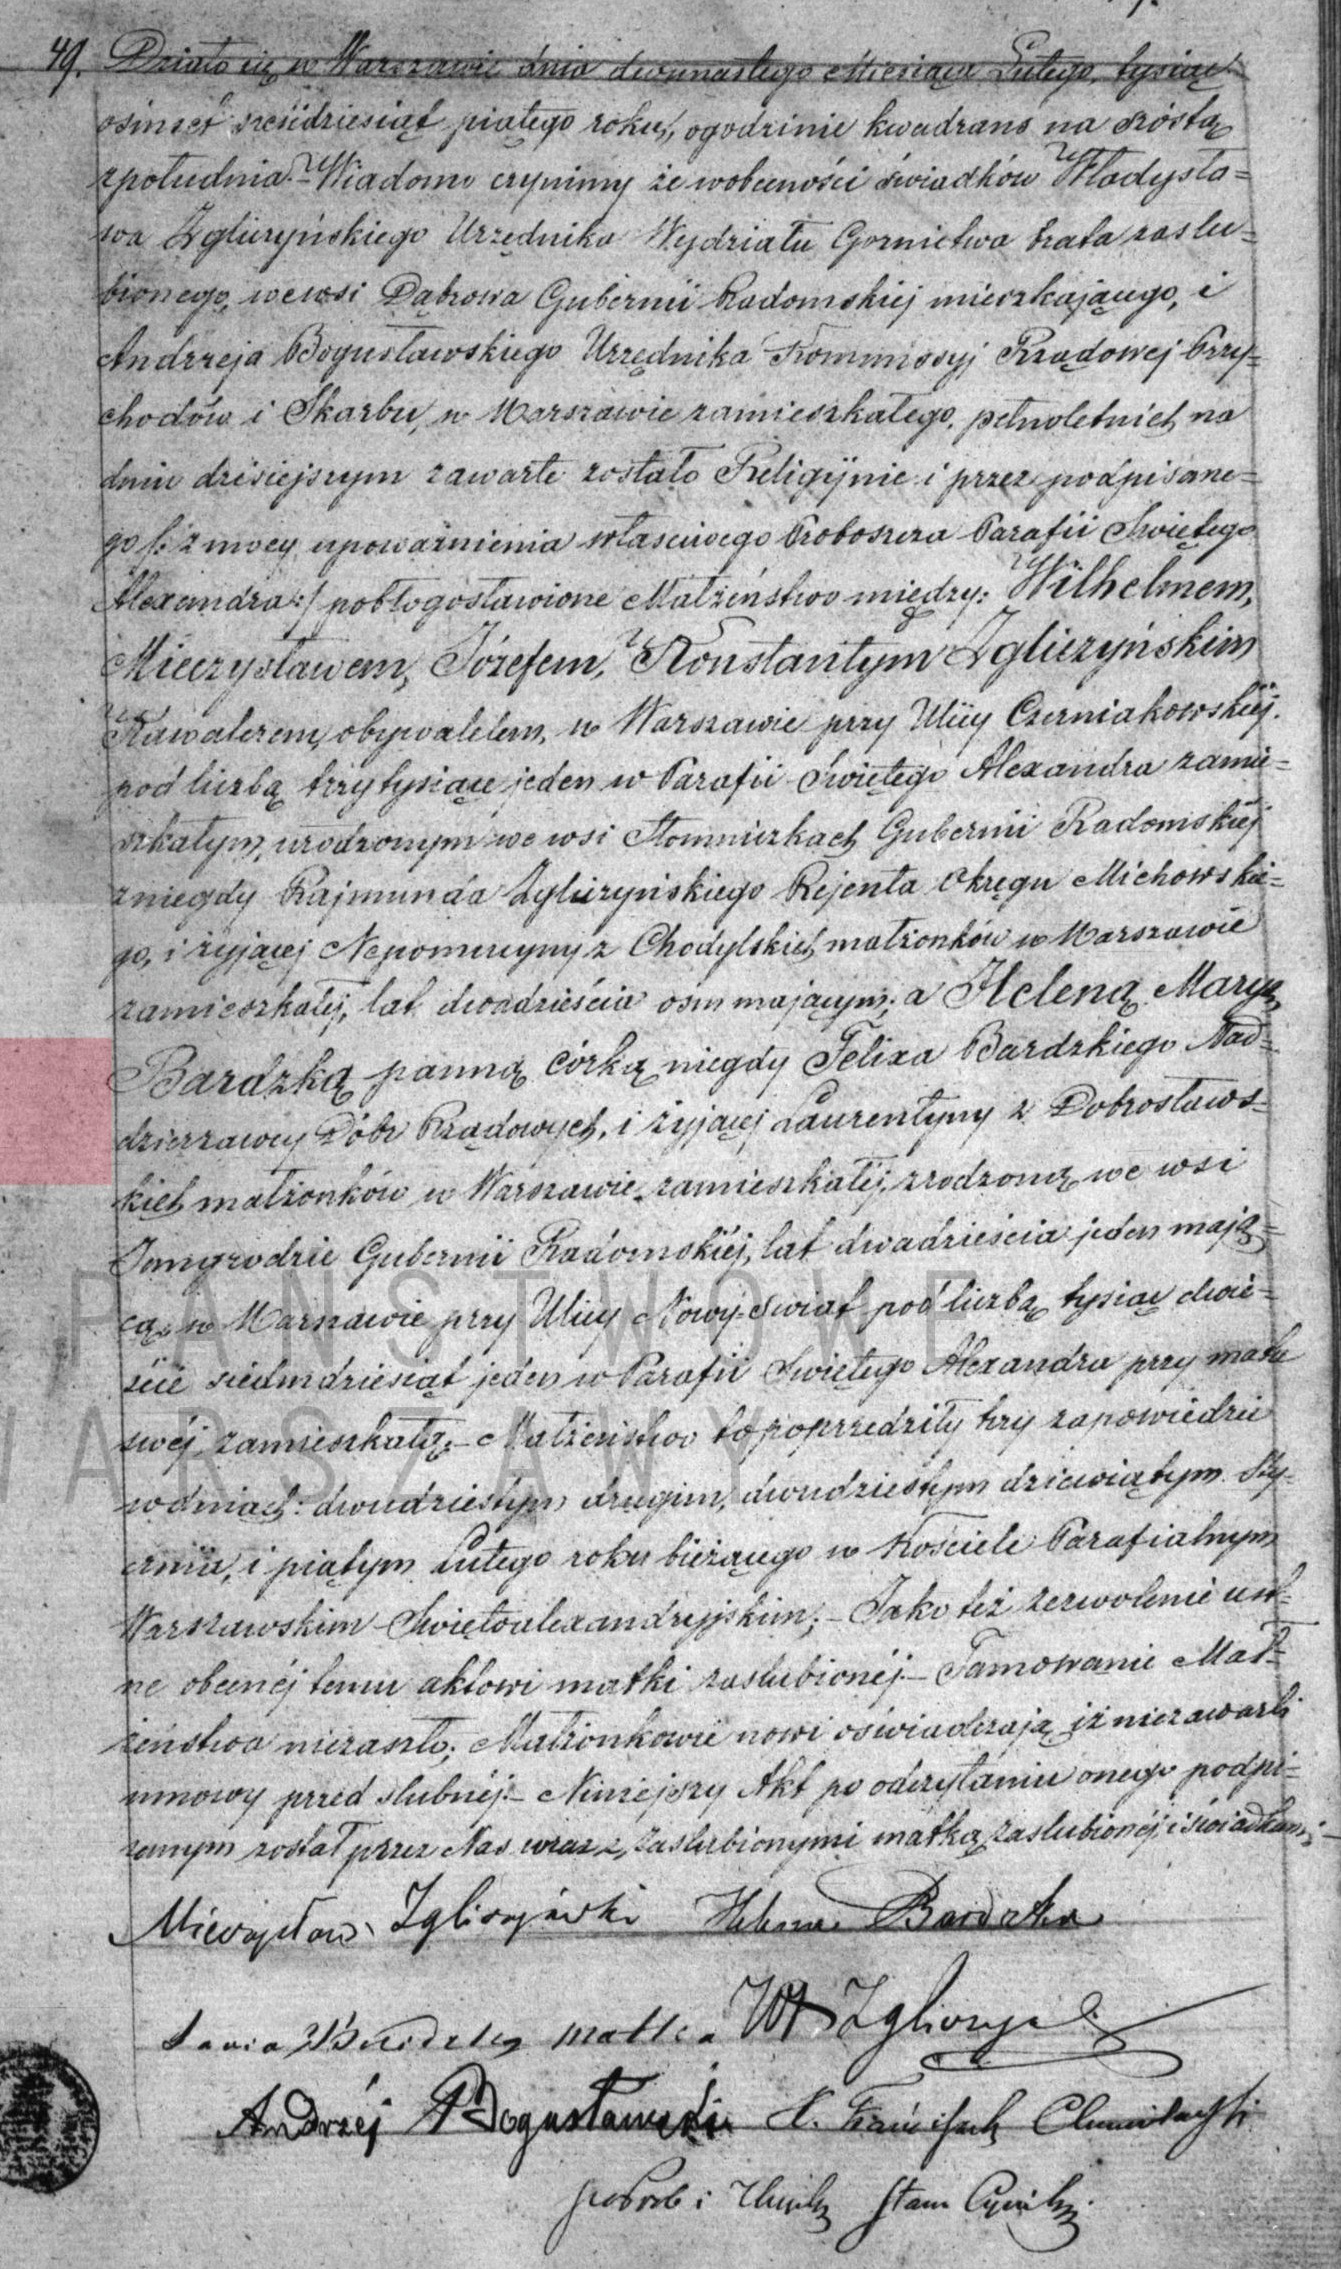 49. Działo się w Warszawie dnia dwunastego Miesiąca Lutego, tysiąc
ośmset sześćdziesiąt piątego roku, ogodzinie kwadrans na szóstą
zpołudnia.- Wiadomo czynimy że wobecności świadków Władysła=
wa Zgliczyńskiego Urzędnika Wydziału Gornictwa brata zaslu=
bionego, wewsi Dąbrowa Gubernii Radomskiej mieszkającego, i
Andrzeja Bogusławskiego Urzędnika Kommissyj Rządowej Przy=
chodów i Skarbu, w Warszawie zamieszkałego, pełnoletnich, na
dniu dzisiejszym zawarte zostało Religijnie i przez podpisane=
go /: z mocy upoważnienia własciwego Proboszcza Parafii Świętego
Alexandra :/ pobłogosławione Małżeństwo między: Wilhelmem,
Mieczysławem, Józefem, Konstantym Zgliczyńskim
Kawalerem, obywatelem, w Warszawie przy Ulicy Czerniakowskiéj
pod liczbą trzy tysiące jeden w Parafii Świętego Alexandra zamie=
szkałym, urodzonym we wsi Słomniczkach Gubernii Radomskiéj
z niegdy Rajmunda Zgliczyńskiego Rejenta Okręgu Michowskie=
go, i żyjącej Nepomucyny z Chodylskich małżonków w Warszawie
zamieszkałéj, lat dwadzieścia osm mającym; a Heleną Maryą
Bardzką panną córką niegdy Felixa Bardzkiego Nad=
dzierzawcy Dóbr Rządowych, i żyjącej Laurentyny z Dobrosławs=
kich małżonków w Warszawie zamieszkałéj, zrodzoną we wsi
Gubernii Radomskiéj, lat dwadzieścia jeden mają=
cą, w Warszawie przy Ulicy Nowy-Świat pod liczbą tysiąc dwie=
ście siedmdziesiąt jeden w Parafii Świętego Alexandra przy matce
swéj zamieszkałą.- Małżeństwo to poprzedziły trzy zapowiedzie
w dniach: dwudziestym drugim, dwudziestym dziewiątym Sty=
cznia, i piątym Lutego roku bieżącego w Kościele Parafialnym
Warszawskim Świętoalexandryjskim;- Jako też zezwolenie ust=
ne obecnéj temu aktowi matki zaslubionéj.- Tamowanie Mał=
żeństwa niezaszło; Małżonkowie nowi oświadczają iż niezawarli
umowy przed slubnéj.- Niniejszy Akt po odczytaniu onego podpi=
sanym został przez Nas wraz z zaslubionymi matką zaslubionéj, i świadkami;-
Mieczysław Zgliczyński Helena Bardzka
Bardzka matka Wł Zgliczyński
Andrzéj Bogusławski X. Franciszek